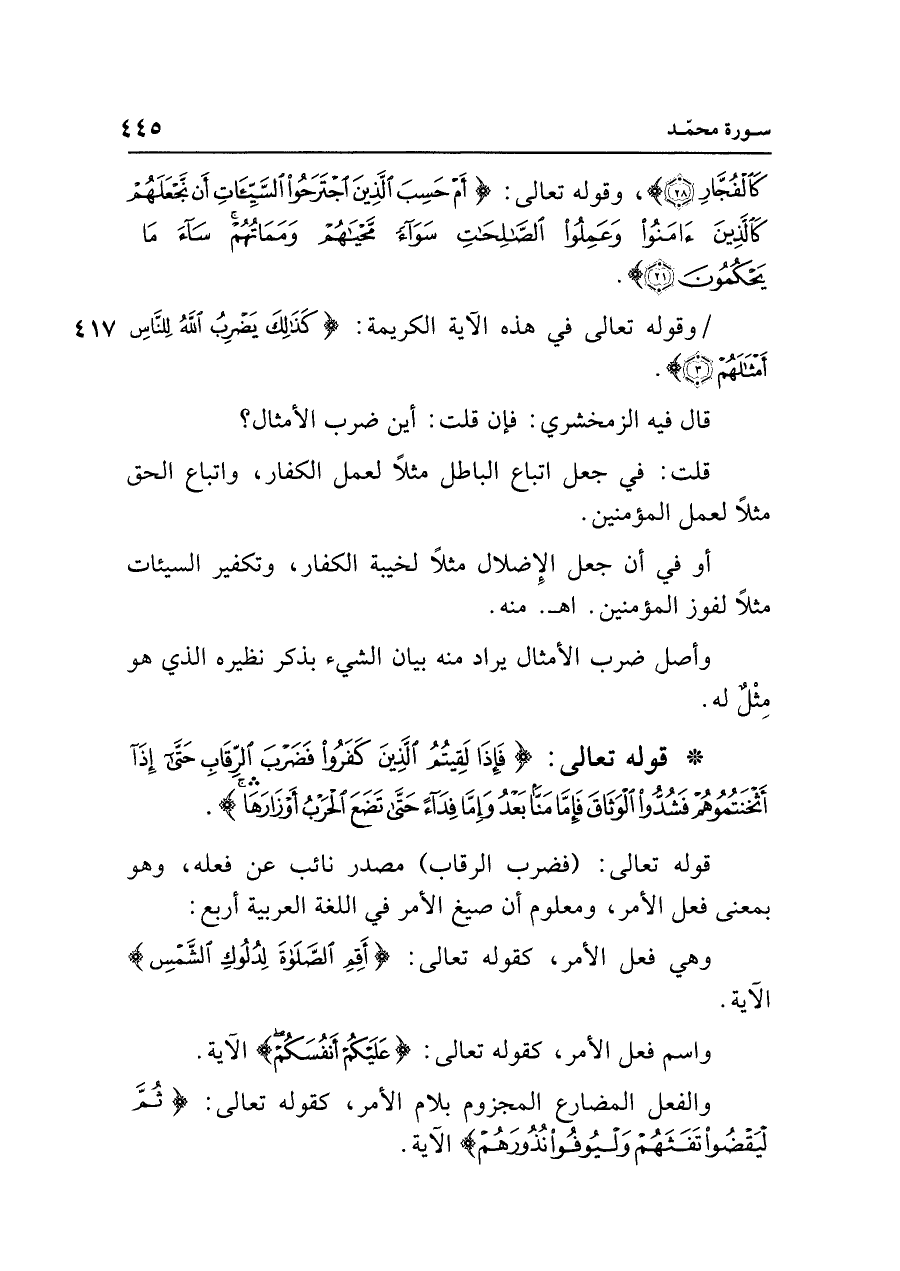 سورة محمّد ٤٤٥
كَٱلْفُجَّارِ ۝٢٨﴾، وقوله تعالى: ﴿أَمْ حَسِبَ ٱلَّذِينَ ٱجْتَرَحُوا۟ ٱلسَّيِّـَٔاتِ أَن نَّجْعَلَهُمْ
كَٱلَّذِينَ ءَامَنُوا۟ وَعَمِلُوا۟ ٱلصَّـٰلِحَـٰتِ سَوَآءً مَّحْيَـٰهُمْ وَمَمَاتُهُمْ ۚ سَآءَ مَا
يَحْكُمُونَ ۝٢١﴾.
/ وقوله تعالى في هذه الآية الكريمة: ﴿كَذَٰلِكَ يَضْرِبُ ٱللَّهُ لِلنَّاسِ ٤١٧
أَمْثَـٰلَهُمْ ۝٣﴾.
قال فيه الزمخشري: فإن قلت: أين ضرب الأمثال؟
قلت: في جعل اتباع الباطل مثلاً لعمل الكفار، واتباع الحق
مثلاً لعمل المؤمنين.
أو في أن جعل الإِضلال مثلاً لخيبة الكفار، وتكفير السيئات
مثلاً لفوز المؤمنين. اهـ. منه.
وأصل ضرب الأمثال يراد منه بيان الشيء بذكر نظيره الذي هو
مِثْلٌ له.
* قوله تعالى: ﴿فَإِذَا لَقِيتُمُ ٱلَّذِينَ كَفَرُوا۟ فَضَرْبَ ٱلرِّقَابِ حَتَّىٰٓ إِذَآ
أَثْخَنتُمُوهُمْ فَشُدُّوا۟ ٱلْوَثَاقَ فَإِمَّا مَنًّۢا بَعْدُ وَإِمَّا فِدَآءً حَتَّىٰ تَضَعَ ٱلْحَرْبُ أَوْزَارَهَا ۚ﴾.
قوله تعالى: (فضرب الرقاب) مصدر نائب عن فعله، وهو
بمعنى فعل الأمر، ومعلوم أن صيغ الأمر في اللغة العربية أربع:
وهي فعل الأمر، كقوله تعالى: ﴿أَقِمِ ٱلصَّلَوٰةَ لِدُلُوكِ ٱلشَّمْسِ﴾
الآية.
واسم فعل الأمر، كقوله تعالى: ﴿عَلَيْكُمْ أَنفُسَكُمْ ۖ﴾ الآية.
والفعل المضارع المجزوم بلام الأمر، كقوله تعالى: ﴿ثُمَّ
لْيَقْضُوا۟ تَفَثَهُمْ وَلْيُوفُوا۟ نُذُورَهُمْ﴾ الآية.